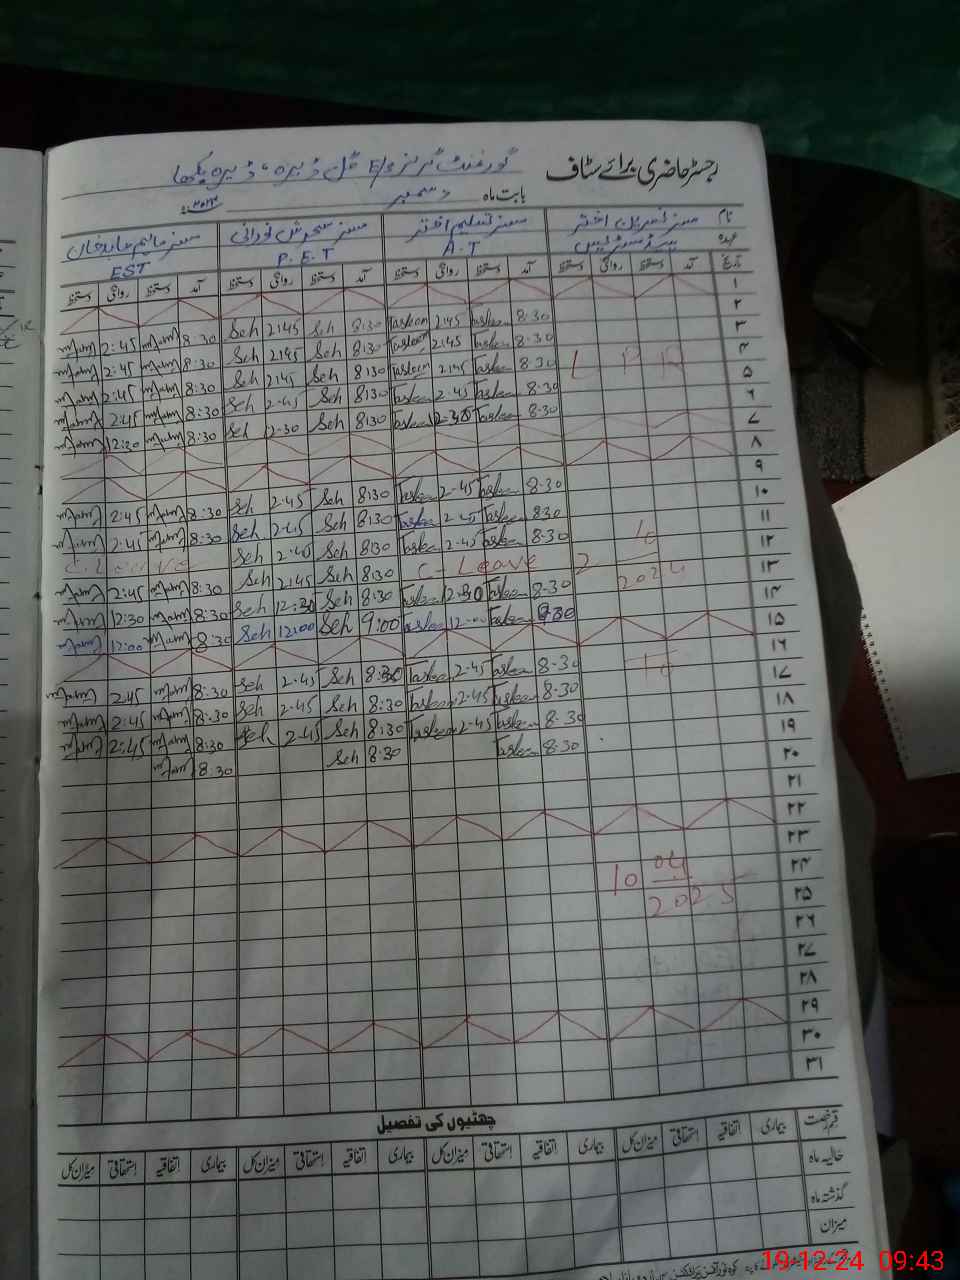 رجسٹر حاضری برائے سٹاف
بابت ماہ دسمبر
نام مسز نسرین اختر مسز تسلیم اختر مسز سحرش نورانی مسز ماہم عابد خان
عہدہ ہیڈمسٹریس A.T P.E.T EST
تاریخ آمد دستخط روانگی دستخط آمد دستخط روانگی دستخط آمد دستخط روانگی دستخط آمد دستخط روانگی دستخط
۱
۲
۳ 8.30 Tasleem 2.45 Tasleem 8.30 Seh 2.45 Seh 8.30 Mjam 2:45 Mjam
۴ 8.30 Tasleem 2.45 Tasleem 8.30 Seh 2.45 Seh 8.30 Mjam 2:45 Mjam
۵ L P R 8.30 Tasleem 2.45 Tasleem 8.30 Seh 2.45 Seh 8:30 Mjam 2:45 Mjam
۶ 8.30 Tasleem 2.45 Tasleem 8.30 Seh 2.45 Seh 8:30 Mjam 2:45 Mjam
۷ 8.30 Tasleem 12.30 Tasleem 8.30 Seh 12.30 Seh 8:30 Mjam 12:30 Mjam
۸
۹
۱۰ 8.30 Tasleem 2.45 Tasleem 8.30 Seh 2.45 Seh 8:30 Mjam 2:45 Mjam
۱۱ 8.30 Tasleem 2.45 Tasleem 8.30 Seh 2.45 Seh 8:30 Mjam 2:45 Mjam
۱۲ 8.30 Tasleem 2.45 Tasleem 8.30 Seh 2.45 Seh C. Leave
۱۳ 2 10 2024 C-Leave 8.30 Seh 2.45 Seh 8:30 Mjam 2:45 Mjam
۱۴ 8.30 Tasleem 12.30 Tasleem 8.30 Seh 12:30 Seh 8:30 Mjam 12:30 Mjam
۱۵ Tasleem Tasleem 9:00 Seh 12:00 Seh 8:30 Mjam 12:00 Mjam
۱۶
۱۷ To 8.30 Tasleem 2.45 Tasleem 8.30 Seh 2.45 Seh 8:30 Mjam 2:45 Mjam
۱۸ 8.30 Tasleem 2.45 Tasleem 8.30 Seh 2.45 Seh 8:30 Mjam 2:45 Mjam
۱۹ 8.30 Tasleem 2.45 Tasleem 8.30 Seh 2.45 Seh 8:30 Mjam 2:45 Mjam
۲۰ 8.30 Tasleem 8.30 Seh 8:30 Mjam
۲۱
۲۲
۲۳
۲۴ 10 04
۲۵ 2025
۲۶
۲۷
۲۸
۲۹
۳۰
۳۱
چھٹیوں کی تفصیل
قسم رخصت بیماری اتفاقیہ استحقاقی میزان کل بیماری اتفاقیہ استحقاقی میزان کل بیماری اتفاقیہ استحقاقی میزان کل بیماری اتفاقیہ استحقاقی میزان کل
حالیہ ماہ
گذشتہ ماہ
میزان
19-12-24 09:43